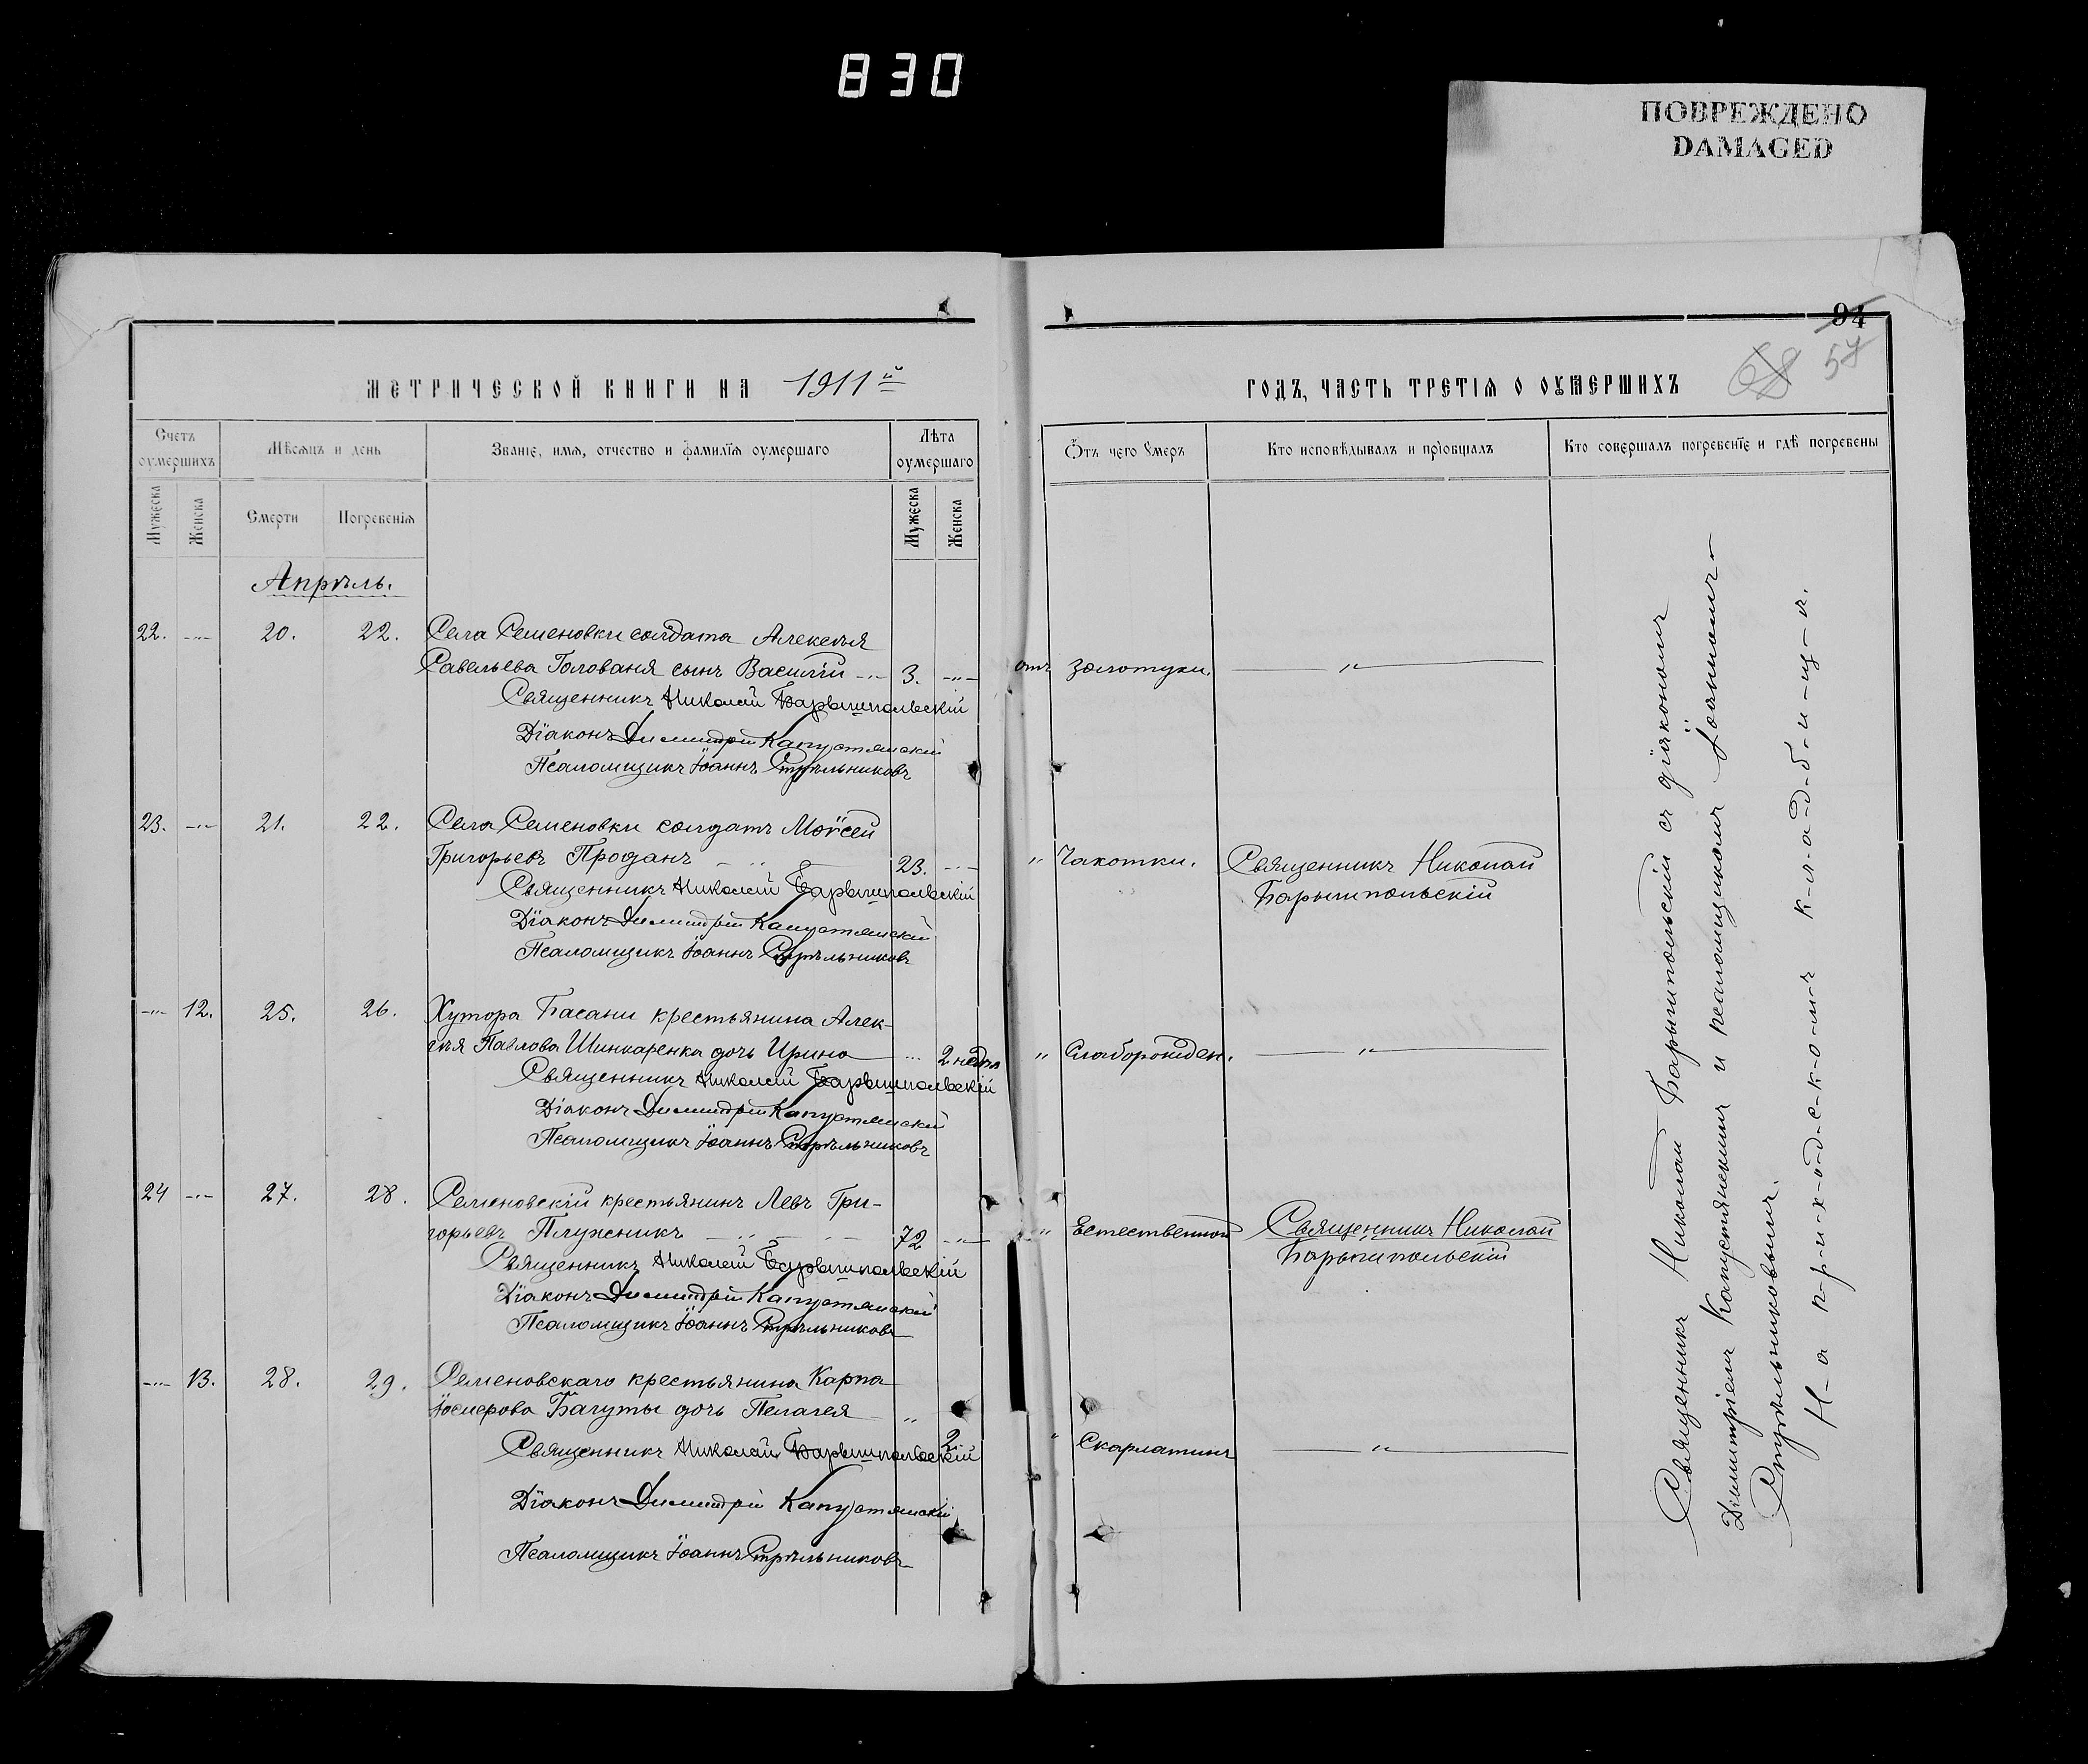 830
ПОВРЕЖДЕНО
DAMAGED
МЕТРИЧЕСКОЙ КНИГИ НА 1911й
Счетъ оумершихъ
Мѣсяцъ и день
Званіе, имя, отчество и фамилія оумершаго
Лѣта оумершаго
Мужеска
Женска
Смерти
Погребенія
Мужеска
Женска
Апрѣль.
22. -"- 20. 22. Села Семеновки солдата Алексѣя
Савельева Голованя сынъ Василій -"- 3. -"-
Священникъ Николай Барышпольскій
Діаконъ Димитрій Капустянскій
Псаломщикъ Іоаннъ Стрѣльниковъ
23. -"- 21. 22. Села Семеновки солдатъ Моѵсей
Григорьевъ Проданъ -"- 23. -"-
Священникъ Николай Барышпольскій
Діаконъ Димитрій Капустянскій
Псаломщикъ Іоаннъ Стрѣльниковъ
-"- 12. 25. 26. Хутора Басани крестьянина Алек-
сѣя Павлова Шинкаренка дочь Ирина -"- 2 недѣл
Священникъ Николай Барышпольскій
Діаконъ Димитрій Капустянскій
Псаломщикъ Іоаннъ Стрѣльниковъ
24 -"- 27. 28. Семеновскій крестьянинъ Левъ Гри-
горьевъ Плужникъ -"- 72 -"-
Священникъ Николай Барышпольскій
Діаконъ Димитрій Капустянскій
Псаломщикъ Іоаннъ Стрѣльниковъ
-"- 13. 28. 29. Семеновскаго крестьянина Карпа
Багуты дочь Пелагея " 2
Священникъ Николай Барышпольскій
Діаконъ Димитрій Капустянскій
Псаломщикъ Іоаннъ Стрѣльниковъ
94
68 57
ГОДЪ, ЧАСТЬ ТРЕТІЯ О ОУМЕРШИХЪ
Отъ чего умеръ
Кто исповѣдывалъ и пріобщалъ
Кто совершалъ погребеніе и гдѣ погребены
отъ золотухи. -"-
" Чахотки. Священникъ Николай
Барышпольскій
" Слаборожден. -"-
" Естественной Священникъ Николай
Барышпольскій
" Скарлатины -"-
Священникъ Николай Барышпольскій съ діакономъ
Димитріемъ Капустянскимъ и псаломщикомъ Іоанномъ
Стрѣльниковымъ.
Н-а п-р-и-х-о-д-с-к-о-м-ъ к-л-а-д-б-и-щ-ѣ.